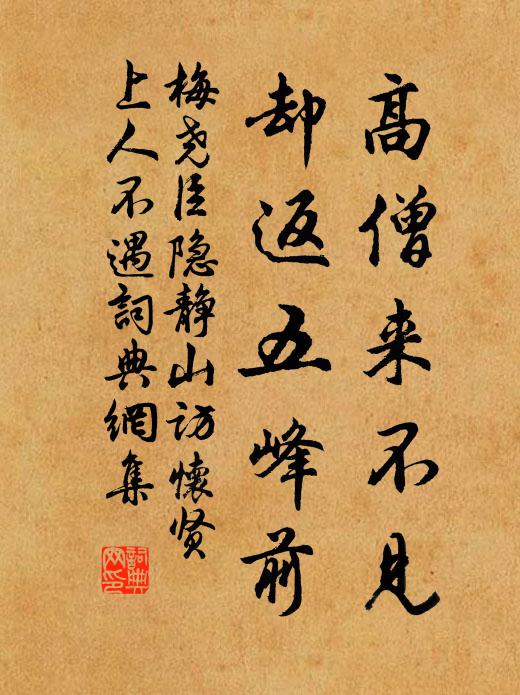 高僧来不见
却返五峰前
梅尧臣隐静山访怀贤
上人不遇詞典網集
詞典網印